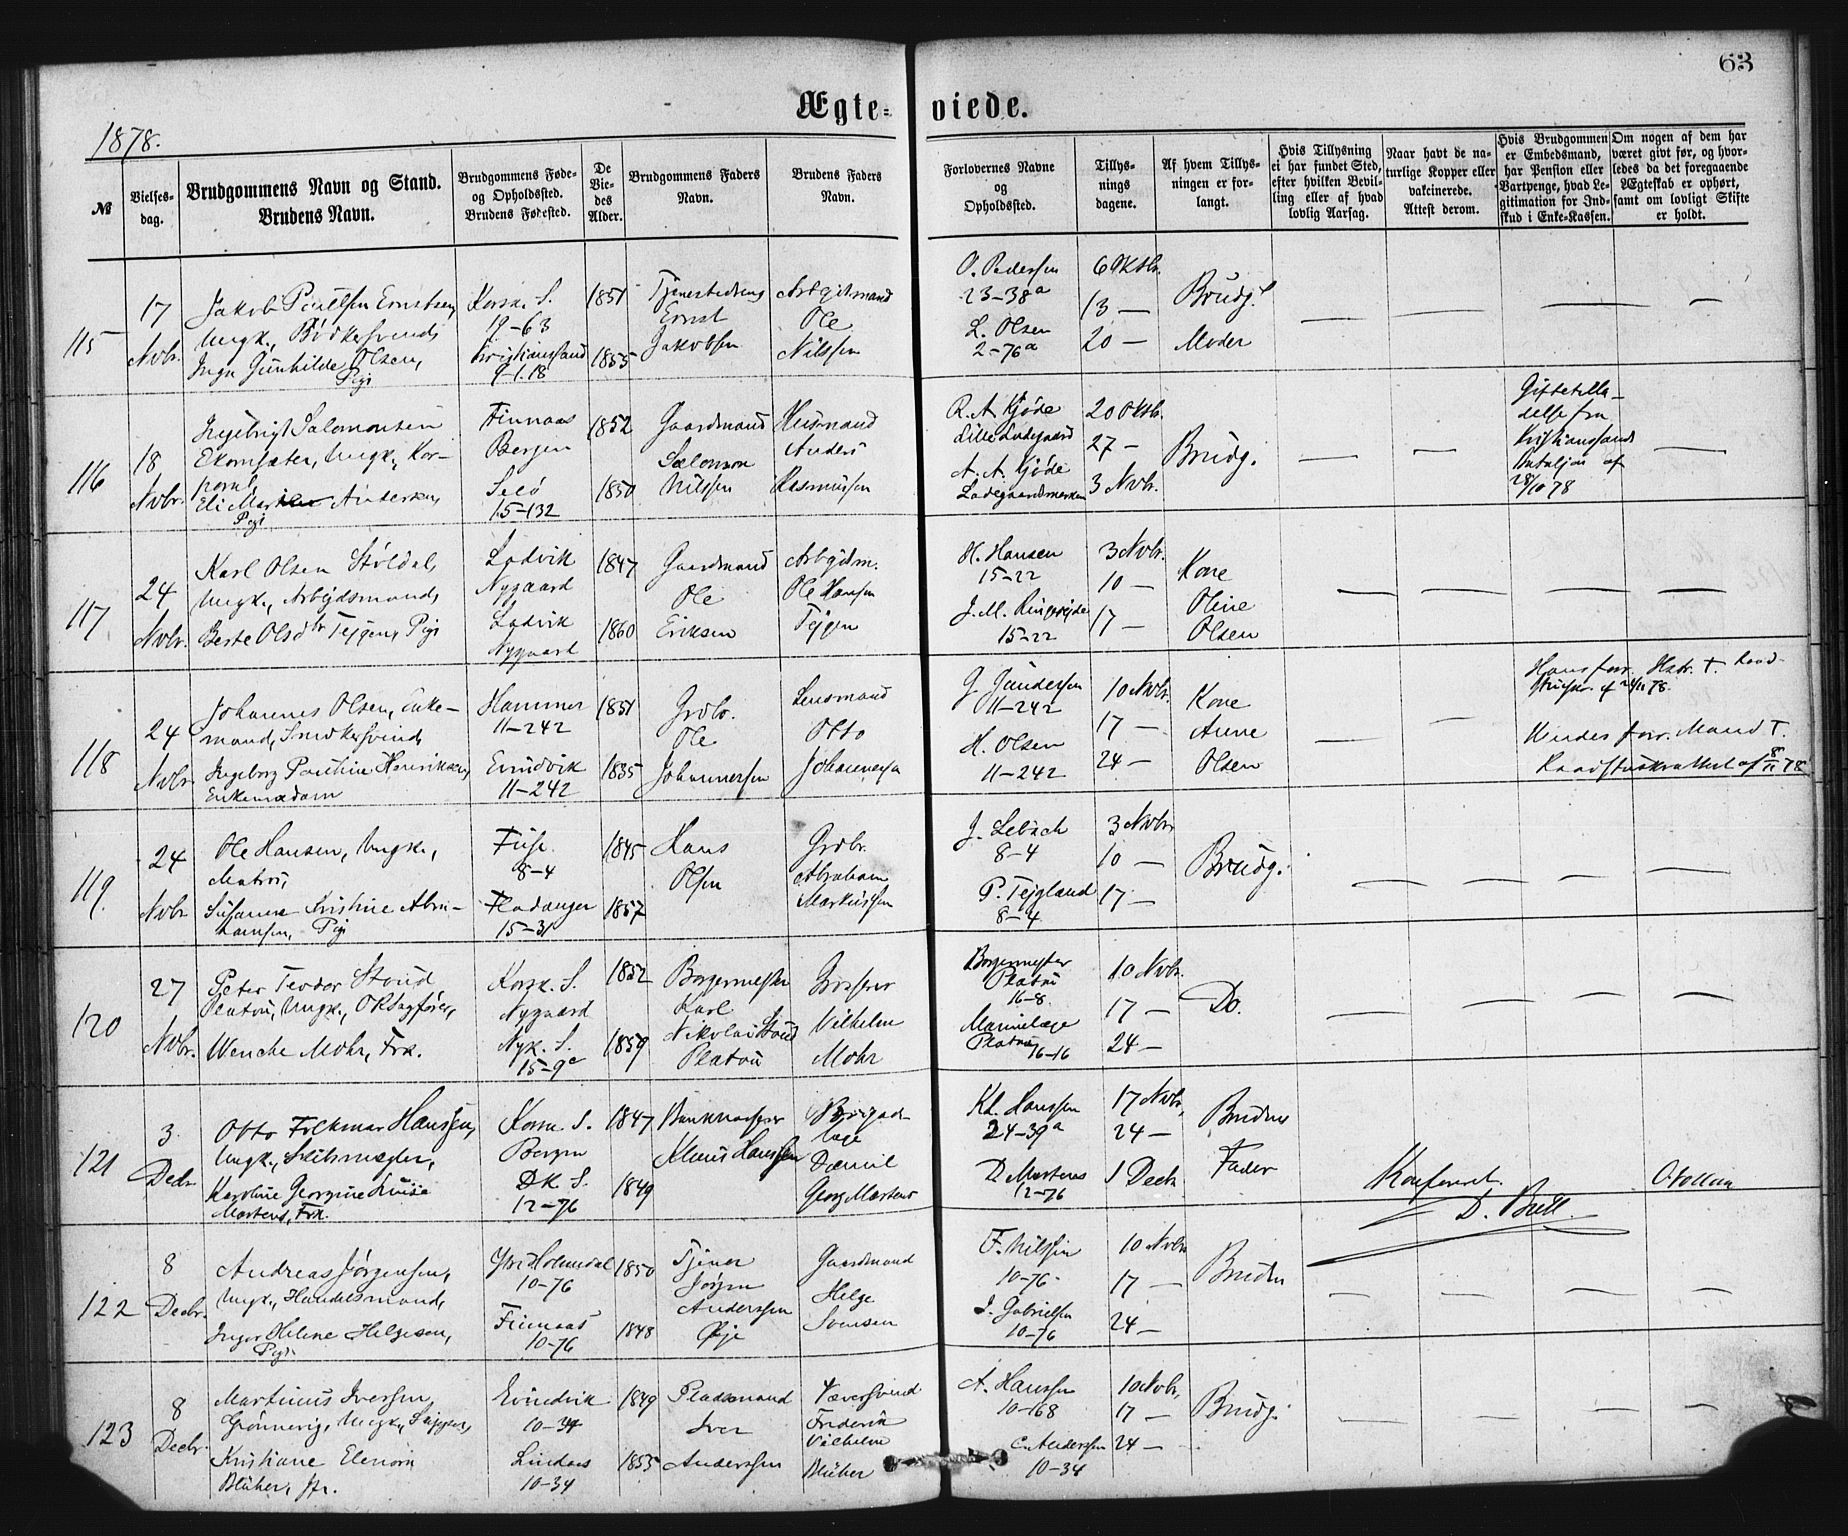 63
Ægte-viede.
1878.
№
Vielses-
dag.
Brudgommens Navn og Stand.
Brudens Navn.
Brudgommens Føde-
og Opholdssted.
Brudens Fødested.
De
Vie-
des
Alder.
Brudgommens Faders
Navn.
Brudens Faders
Navn.
Forlovernes Navne
og
Opholdssted.
Tillys-
nings
dagene.
Af hvem Tillys-
ningen er for-
langt.
Hvis Tillysning
ei har fundet Sted,
efter hvilken Bevil-
ling eller af hvad
lovlig Aarsag.
Naar havt de na-
turlige Kopper eller
vakcinerede.
Attest derom.
Hvis Brudgommen
er Embedsmand,
har Pension eller
Vartpenge, hvad Le-
gitimation for Ind-
skud i Enke-Kassen.
Om nogen af dem har
været givt før, og hvor-
ledes da det foregaaende
Ægteskab er ophørt,
samt om lovligt Skifte
er holdt.
115
17
Nvbr.
Jakob Ernstsen,
Ungk., Bødkersvend
Inga Gunhilde Olsen,
Pige
Korsk. S.
19-63
Kristianssand
9-1.18
1851
1855
Ernst
Jakobsen
Arbejdsmand
Ole
Nilssen
O. Pederssen
23-38a
L. Olsen
2-76a
6 Oktbr.
13 —
20 —
Brudg.s
Moder
116
18
Nvbr.
Ingebrigt Salomonsen
Ekornsæter, Ungk., Kor-
poral,
Eli Andersen,
Pige
Finnaas
Bergen
Selø
15-132
1852
1850
Gaardmand
Salomon
Nilssen
Husmand
Anders
Rasmussen
R. A. Gjøde
Lille Ladegaard
A. A. Gjøde
Ladegaardsmarken
20 Oktb.
27 —
3 Nvbr.
Brudg.
Giftetilla-
delse fra
Kristianssands
Bataljon af
28/10 78
117
24
Nvbr.
Karl Olsen Støldal,
Ungk., Arbejdsmand,
Berte Olsdtr Tejgen, Pige
Ladvik
Nygaard
Ladvik
Nygaard
1847
1860
Gaardmand
Ole
Eriksen
Arbejdsm.
Ole Hansen
Tejgen
H. Hansen
15-22
J. M.
15-22
3 Nvbr.
10 —
17 —
Kone
Oline
Olsen
118
24
Nvbr.
Johannes Olsen, Enke-
mand, Snedkersvend
Ingeborg Pauline Henriksen,
Enkemadam
Hammer
11-242
Evindvik
11-242
1851
1835
Grdbr.
Ole
Johannessen
Lensmand
Otto
Johannesen
G Gundersen
11-242
H. Olsen
11-242
10 Nvbr.
17 —
24 —
Kone
Anne
Olsen
Hans forr. Hstr. †.
Hendes forr. Mand †.
Raadstueskrattest af 8/11 78
119
24
Nvbr
Ole Hansen, Ungk.,
Matros,
Susanne Kristine Abra-
hamsen, Pige
Fuse
8-4
Fladanger
15-31
1845
1857
Hans
Olsen
Grdbr.
Abraham
Markussen
J. Lebach
8-4
P. Tejgland
8-4
3 Nvbr
10 —
17 —
Brudg.
120
27
Nvbr.
Peter Teodor Stoud
Platou, Ungk., O.R.Sagfører,
Wenche Mohr, Frk.
Korsk. S.
Nygaard
Nyk. S.
15-9c
1852
1859
Borgermester
Karl
Nikolai Stoud
Platou
Grosserer
Vilhelm
Mohr
Borgermester
Platou
16-8.
Marinelæge
Platou
16-16
10 Nvbr.
17 —
24 —
Do.
121
3
Decbr
Otto Folkmar Hanssen,
Ungk., Skibsmægler,
Karoline Georgine Luise
Martens, Frk.
Korsk. S.
Bergen
DK S.
12-76
1847
1849
Bankkasserer
Klaus Hanssen
Brigade-
læge
Daniel
Georg Martens
Kl. Hanssen
24-39a
D. Martens
12-76
17 Nvbr,
24 —
1 Decbr
Brudens
Fader
Konfereret.
D. Bull.
122
8
Decbr.
Andreas Jørgensen,
Ungk., Handelsmand,
Inger Helene Helgesen,
Pige
Ytre Holmedal
10-76
Finnaas
10-76
1850
1848
Tjener
Jørgen
Anderssen
Øije
Gaardmand
Helge
Svensen
F. Nilssen
10-76
J. Gabrielsen
10-76
10 Nvbr
17 —
24 —
Bruden
123
8
Decbr.
Martinus Iverssen
Grønnevig, Ungk., Skipper,
Kristiane Elenora
Blüher, Jfr.
Evindvik
10-34
Lindaas
10-34
1849
1855
Pladsmand
Iver
Anderssen
Væversvend
Frederik
Vilhelm
Blüher
A. Hanssen
10-168
C. Anderssen
10-34
10 Nvbr,
17 —
24 —
Brudg.